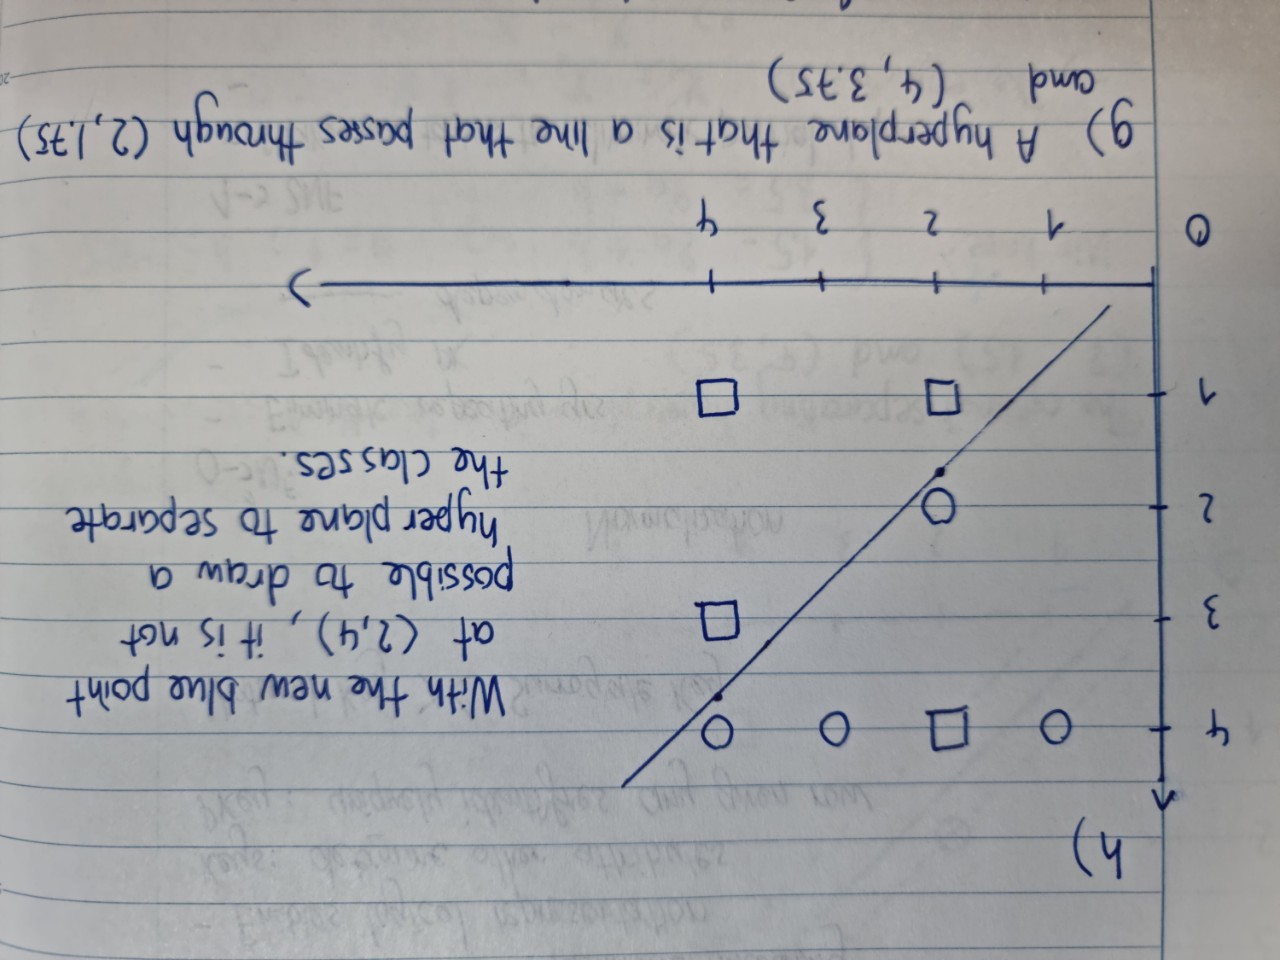 h)
4
3
2
1
0
1 2 3 4
With the new blue point
at (2,4), it is not
possible to draw a
hyperplane to separate
the classes.
g) A hyperplane that is a line that passes through (2,1.75)
and (4, 3.75)